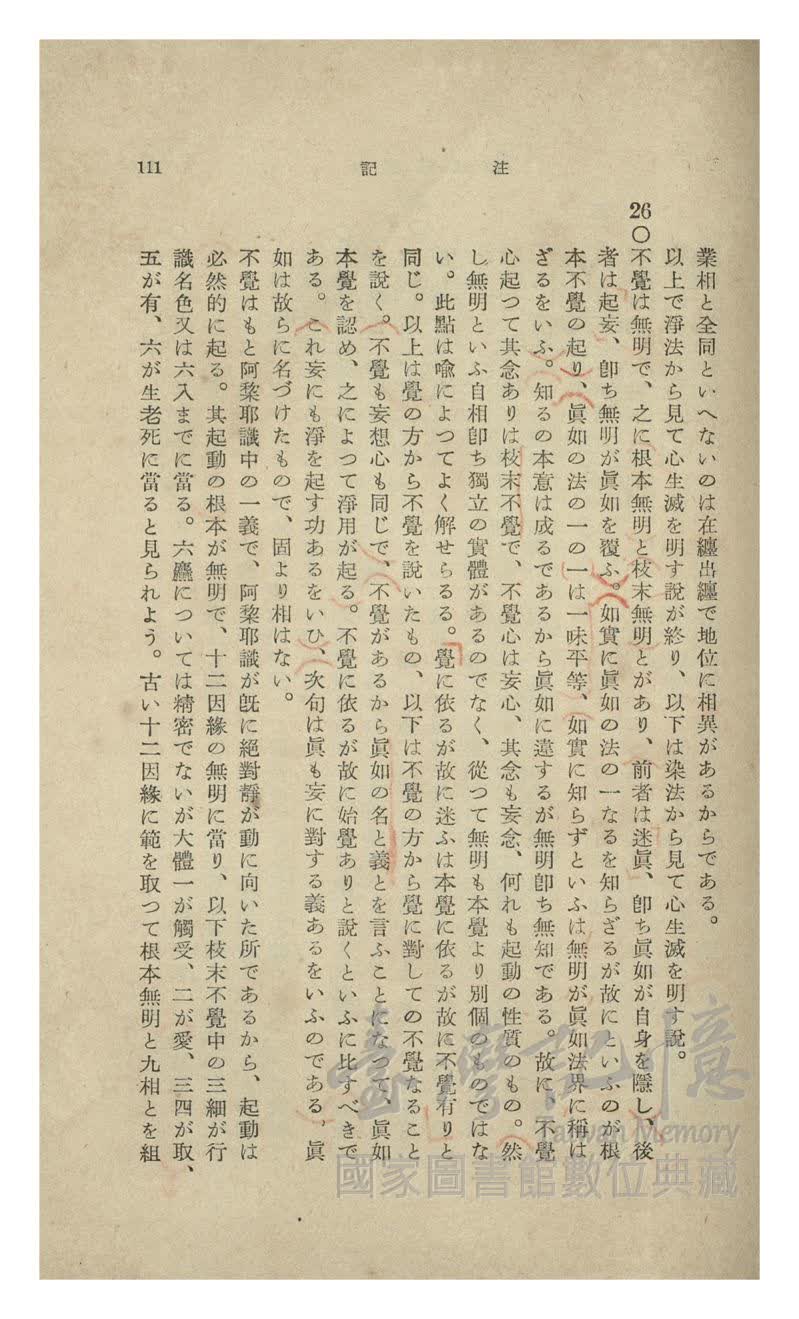 注記
111
業相と全同といへないのは在纏出纏で地位に相異があるからである。
以上で淨法から見て心生滅を明す說が終り、以下は染法から見て心生滅を明す說。
26○不覺は無明で、之に根本無明と枝末無明とがあり、前者は迷眞、卽ち眞如が自身を隱し、後
者は起妄、卽ち無明が眞如を覆ふ。如實に眞如の法の一なるを知らざるが故にといふのが根
本不覺の起り、眞如の法の一の一は一味平等、如實に知らずといふは無明が眞如法界に稱は
ざるをいふ。知るの本意は成るであるから眞如に違するが無明卽ち無知である。故に、不覺
心起つて其念ありは枝末不覺で、不覺心は妄心、其念も妄念、何れも起動の性質のもの。然
し無明といふ自相卽ち獨立の實體があるのでなく、從つて無明も本覺より別個のものではな
い。此點は喩によつてよく解せらるる。覺に依るが故に迷ふは本覺に依るが故に不覺有りと
同じ。以上は覺の方から不覺を說いたもの、以下は不覺の方から覺に對しての不覺なること
を說く。不覺も妄想心も同じで、不覺があるから眞如の名と義とを言ふことになつて、眞如
本覺を認め、之によつて淨用が起る。不覺に依るが故に始覺ありと說くといふに比すべきで
ある。これ妄にも淨を起す功あるをいひ、次句は眞も妄に對する義あるをいふのである。眞
如は故らに名づけたもので、固より相はない。
不覺はもと阿黎耶識中の一義で、阿黎耶識が旣に絕對靜が動に向いた所であるから、起動は
必然的に起る。其起動の根本が無明で、十二因緣の無明に當り、以下枝末不覺中の三細が行
識名色又は六入までに當る。六麤については精密でないが大體一が觸受、二が愛、三四が取、
五が有、六が生老死に當ると見られよう。古い十二因緣に範を取つて根本無明と九相とを組
臺灣記憶
Taiwan Memory
國家圖書館數位典藏